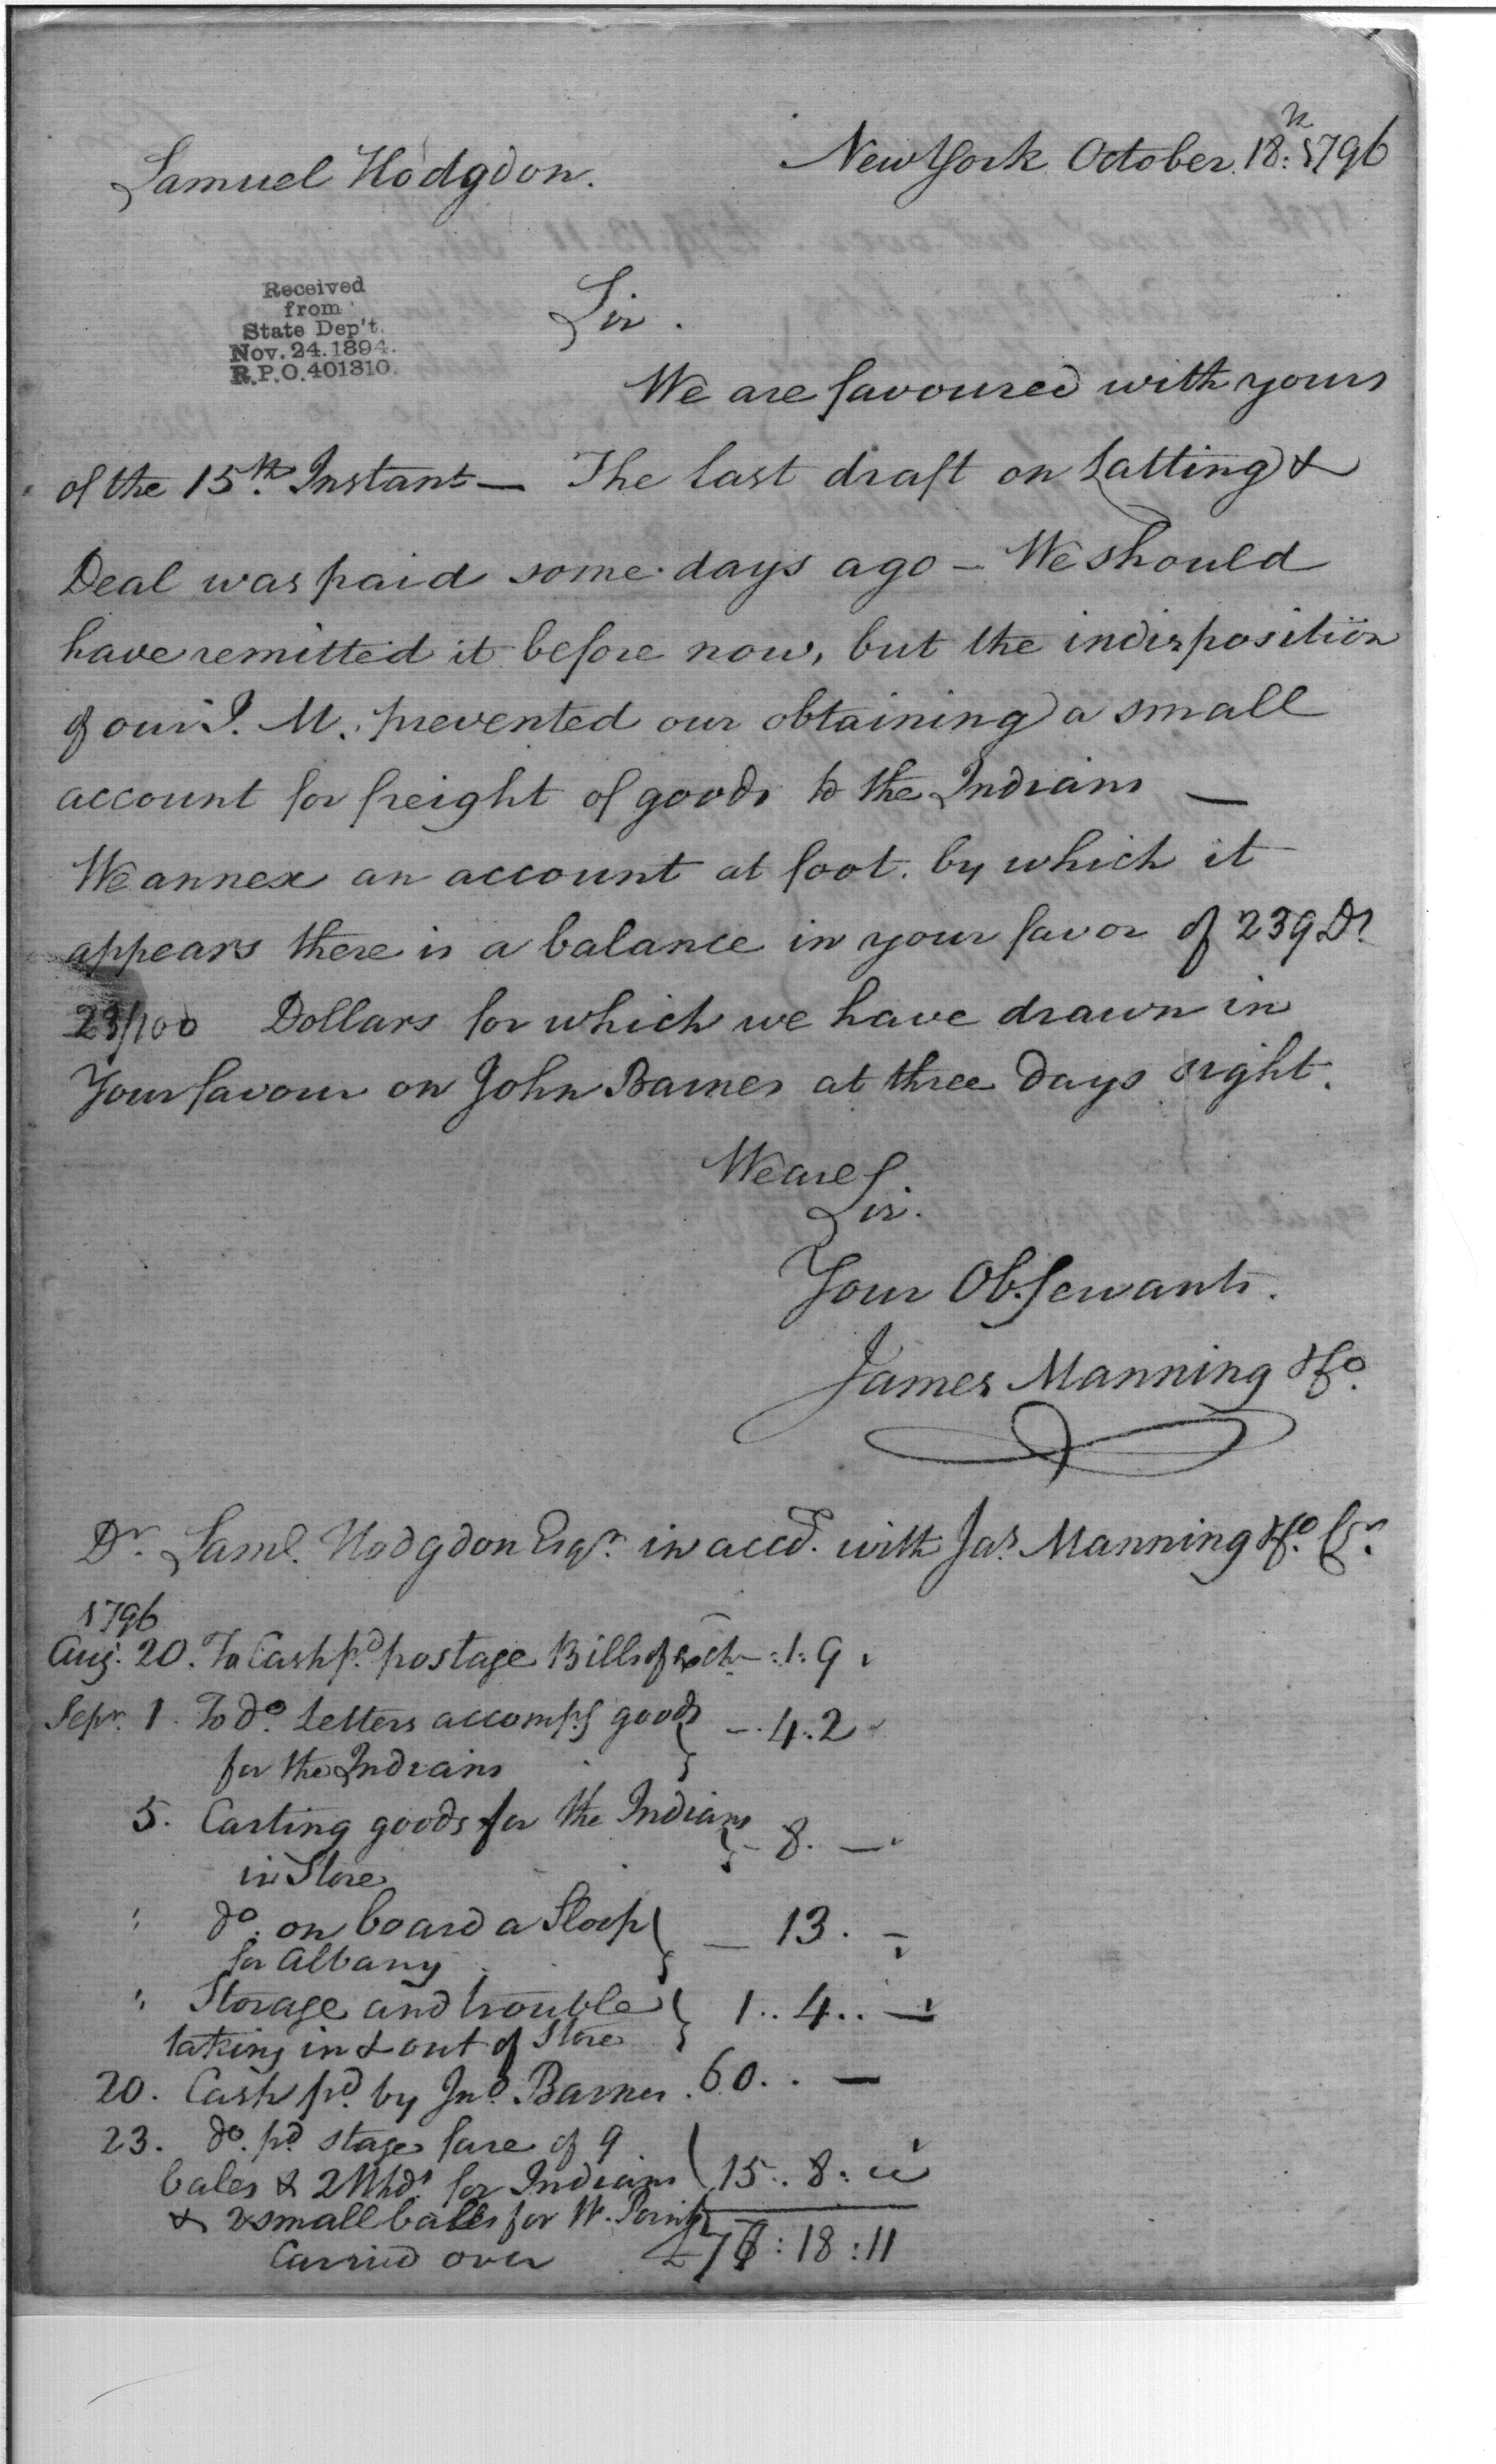 New York October 18th 1796
Samuel Hodgdon.
Received
from
State Dep't.
Nov. 24. 1894.
R.P.O. 401310.
Sir.
We are favoured with yours
of the 15th Instant — The last draft on Latting &
Deal was paid some days ago — We should
have remitted it before now, but the indisposition
of our J. M. prevented our obtaining a small
account for freight of goods to the Indians —
We annex an account at foot. by which it
appears there is a balance in your favor of 239 Drs
23/100 Dollars for which we have drawn in
Your favour on John Barnes at three days sight.
We are
Sir.
Your Ob. Servants.
James Manning & Co.
Dr. Saml. Hodgdon Esqr. in acct. with Jas Manning & Co. Cr.
1796
Aug. 20. To Cash pd. postage Bills of Exch - : 1 : 9
Sepr. 1. To do. Letters accompg goods - . 4 . 2
for the Indians
5. Carting goods for the Indians - 8. —
in Store
" do. on board a Sloop — 13. —
for Albany
" Storage and trouble 1 .. 4 .. —
taking in & out of Store
20. Cash pd. by Jno. Barnes . 60 . . —
23. do. pd stage fare of 9
bales & 2 Hhds for Indians 15 .. 8 : "
& 2 small bales for W. Point
Carried over £ 78 : 18 : 11